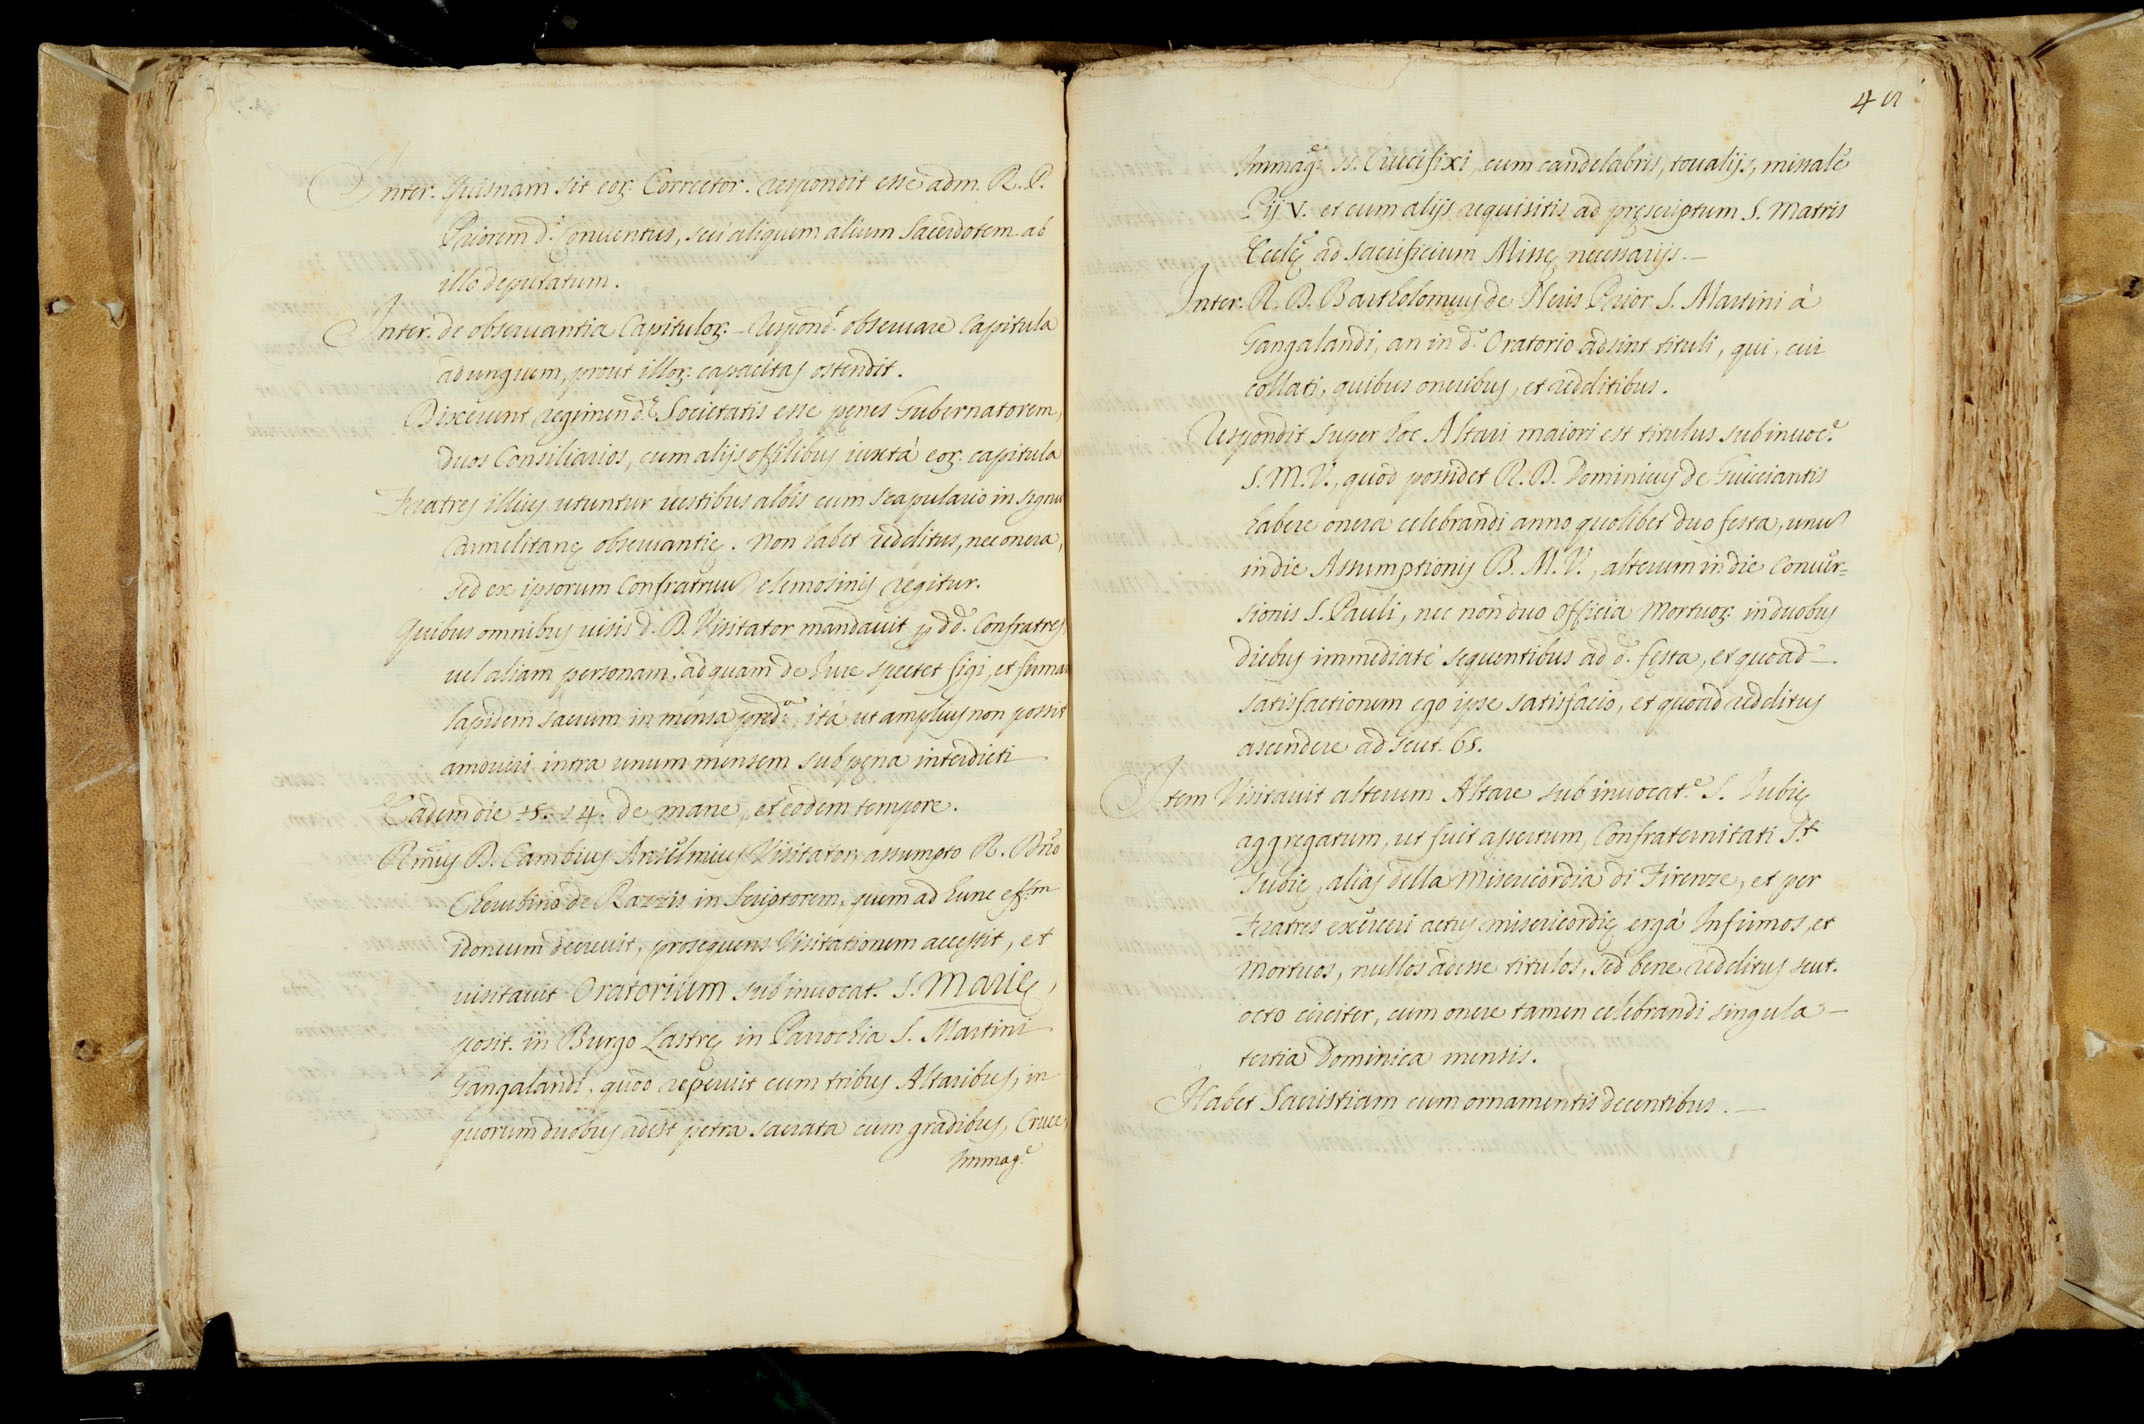 Inter. Quisnam sit eor: Corrector. respondit esse adm. R. P.
Priorem d.i Conuentus, seù aliquem alium Sacerdotem ab
illo deputatum.
Inter. de obseruantia Capitulor: - respond.t obseruare Capitula
ad unguem, prout illor: capacitas ostendit.
Dixerunt regimen d.ę Societatis esse pęnes Gubernatorem,
duos Consiliarios, cum alijs offilibus iuxtà eor: capitula
Fratres illius utuntur uestibus albis cum scapulario in signū
Carmelitanę obseruantię. Non habet redditus, nec onera,
sed ex ipsorum Confratrum elemosinis regitur.
Quibus omnibus uisis d. D. Visitator mandauit p dd.os Confratres,
uel aliam personam, ad quam de Iure spectet figi, et firmari
lapidem sacrum in mensa pred.a, ità ut amplius non possit
amoueri intra unum mensem sub pęna interdicti
Eadem die 14. de mane, et eodem tempore.
Rm̄us D. Cambius Anselmius Visitator assumpto R. Dn̄o
Cherubino de Razzis in Scriptorem, quem ad hunc eff.m
idoneum decreuit, prosequens Visitationem accessit, et
uisitauit Oratorium sub inuocat.e S. Marię,
posit. in Burgo Lastrę in Parrochia S. Martini
Gangalandi, quod reperuit cum tribus Altaribus, in
quorum duobus adest petra sacrata cum gradibus, Cruce,
Immag.e
42
Immag.e ss. Crucifixi, cum candelabris, toualijs, missale
Pij V. et cum alijs requisitis ad pręscriptum S. Matris
Eccłę ad sacrificium Missę necessarijs. -
Inter. R. D. Bartholomęus de Neris Prior S. Martini à
Gangalandi, an in d.o Oratorio adsint tituli, qui, cui
collati, quibus oneribus, et redditibus.
Respondit super hoc Altari maiori est titulus sub inuoc.e
S. M. V., quod possidet R. D. Dominicus de Guicciantis
habere onera celebrandi anno quolibet duo festa, unum
in die Assumptionis B. M. V., alterum in die Conuer=
sionis S. Pauli, nec non duo officia Mortuor: in duobus
diebus immediatè sequentibus ad d.a fęsta, et quoad -
satisfactionem ego ipse satisfacio, et quoad redditus
ascendere ad scut. 65.
Item Visitauit alterum Altare sub inuocat.e S. Iubię
aggregatum, ut fuit assertum, Confraternitati S.tę
Iubię, alias della Misericordia di Firenze, et per
Fratres exerceri actus misericordię ergà Infirmos, et
Mortuos, nullos adesse titulos, sed bene redditus scut.
octo circiter, cum onere tamen celebrandi singula -
tertia Dominica mensis.
Habet Sacristiam cum ornamentis decentibus. -